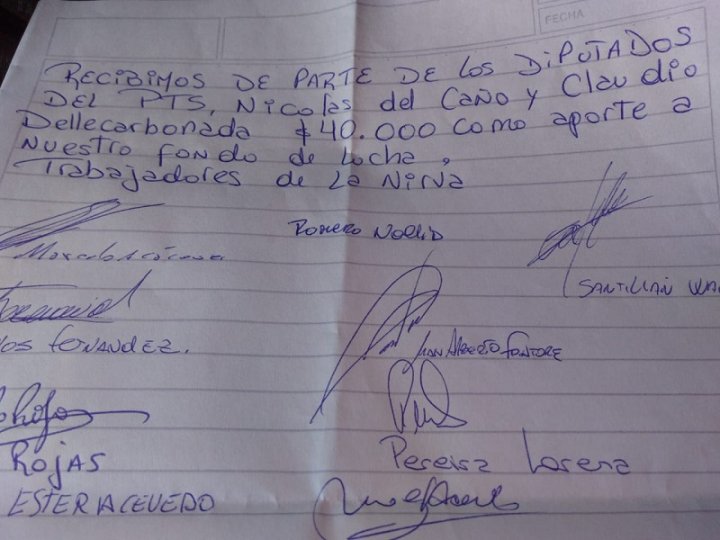 FECHA
RECIBIMOS DE PARTE DE LOS DIPUTADOS
DEL PTS, NICOLAS del CAÑO Y Claudio
Dellecarbonada $40.000 como aporte a
Nuestro fondo de lucha,
Trabajadores de La Nirva
Romero
SANTILLAN
FERNANDEZ.
ALBERTO
ROJAS
Pereira Lorena
ESTER ACEVEDO